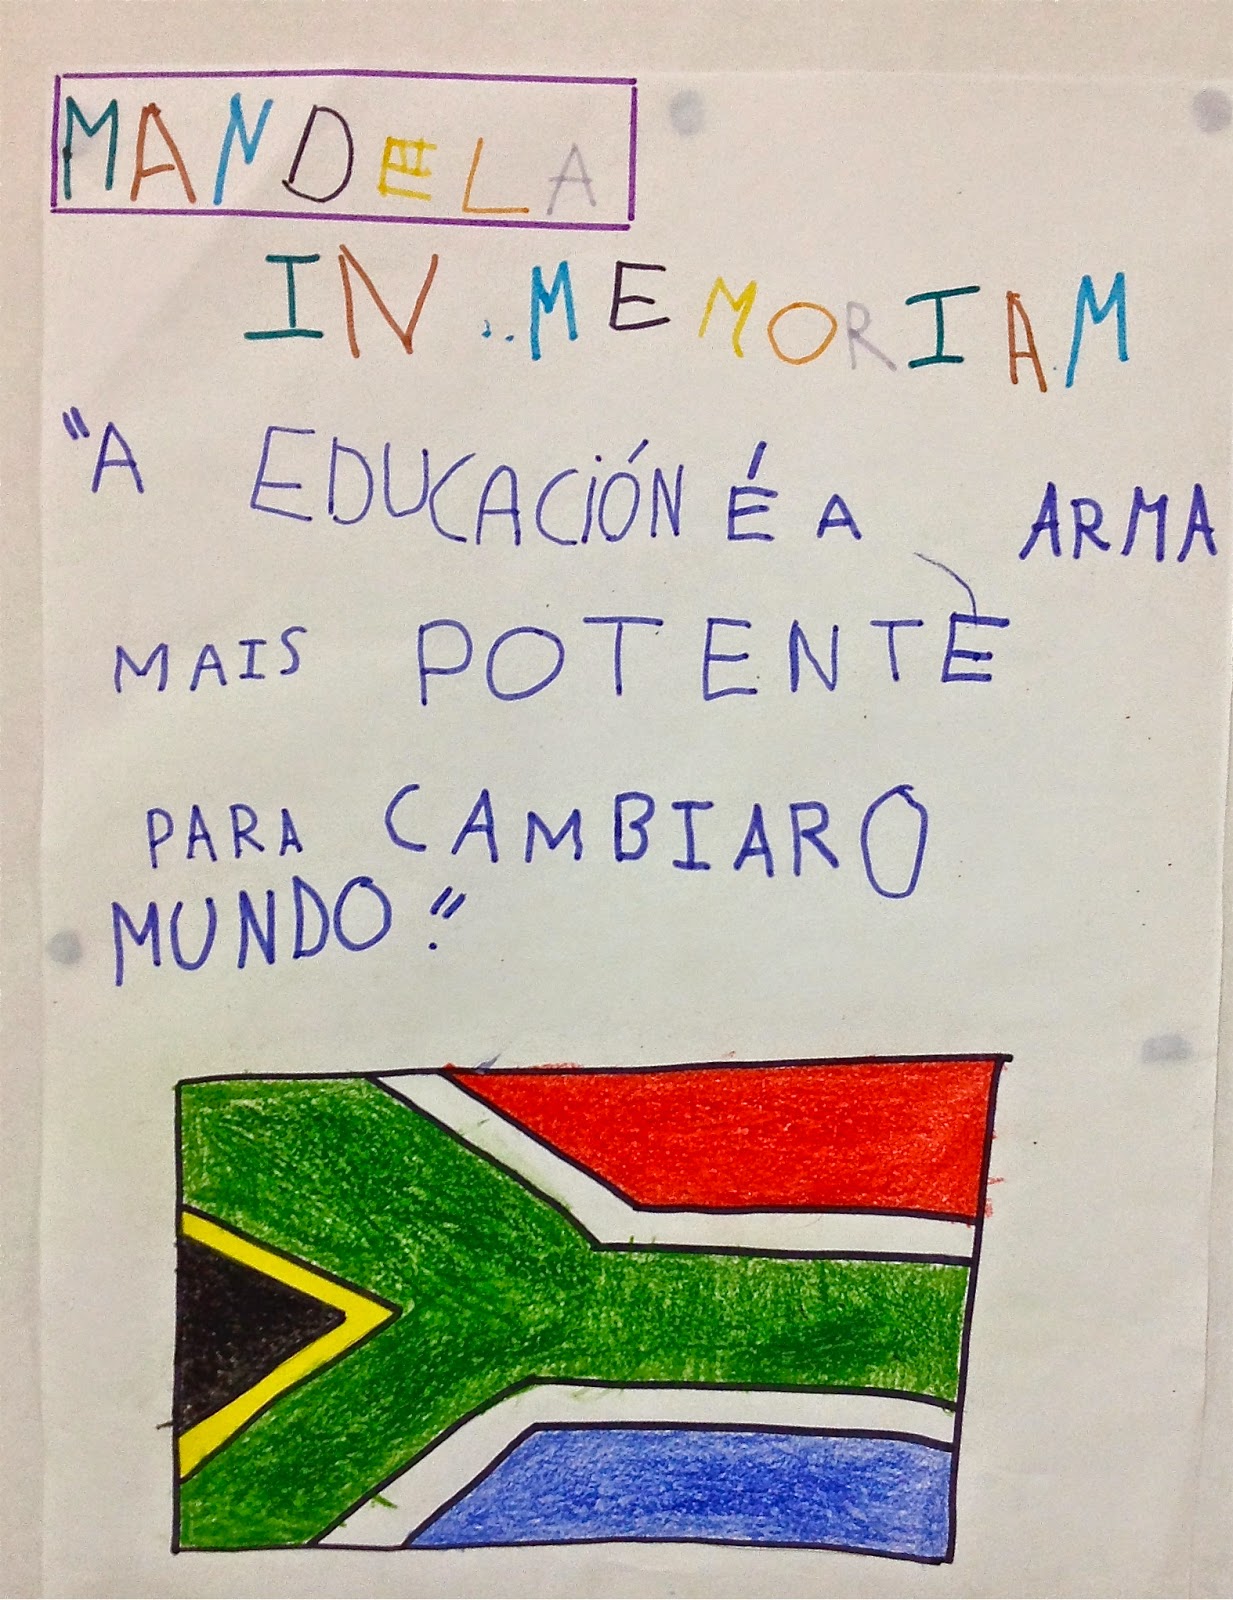 MANDELA
IN MEMORIAM
"A EDUCACIÓN É A ARMA
MAIS POTENTE
PARA CAMBIAR O
MUNDO."